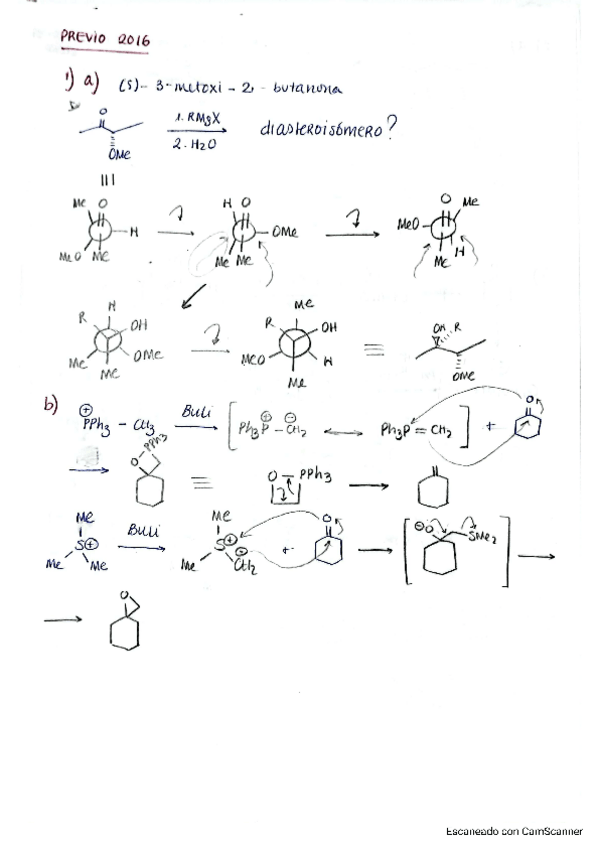 PREVIO 2016
1) a) (S)- 3-metoxi - 2 - butanona
O 1. RMgX diasteroisómero?
OMe 2. H2O
Me O H O O Me
H OMe MeO
MeO Me Me Me Me H
H Me
R OH R OH OH R
Me OMe MeO H
Me Me OMe
b) ⊕PPh3 - CH3 BuLi [ Ph3P⊕ - CH2⊖ ⟷ Ph3P = CH2 ] + O
O PPh3 ≡ O - PPh3
Me Me O ⊖O SMe2
S⊕ BuLi S⊕ ⊖ +
Me Me Me CH2
O
Escaneado con CamScanner